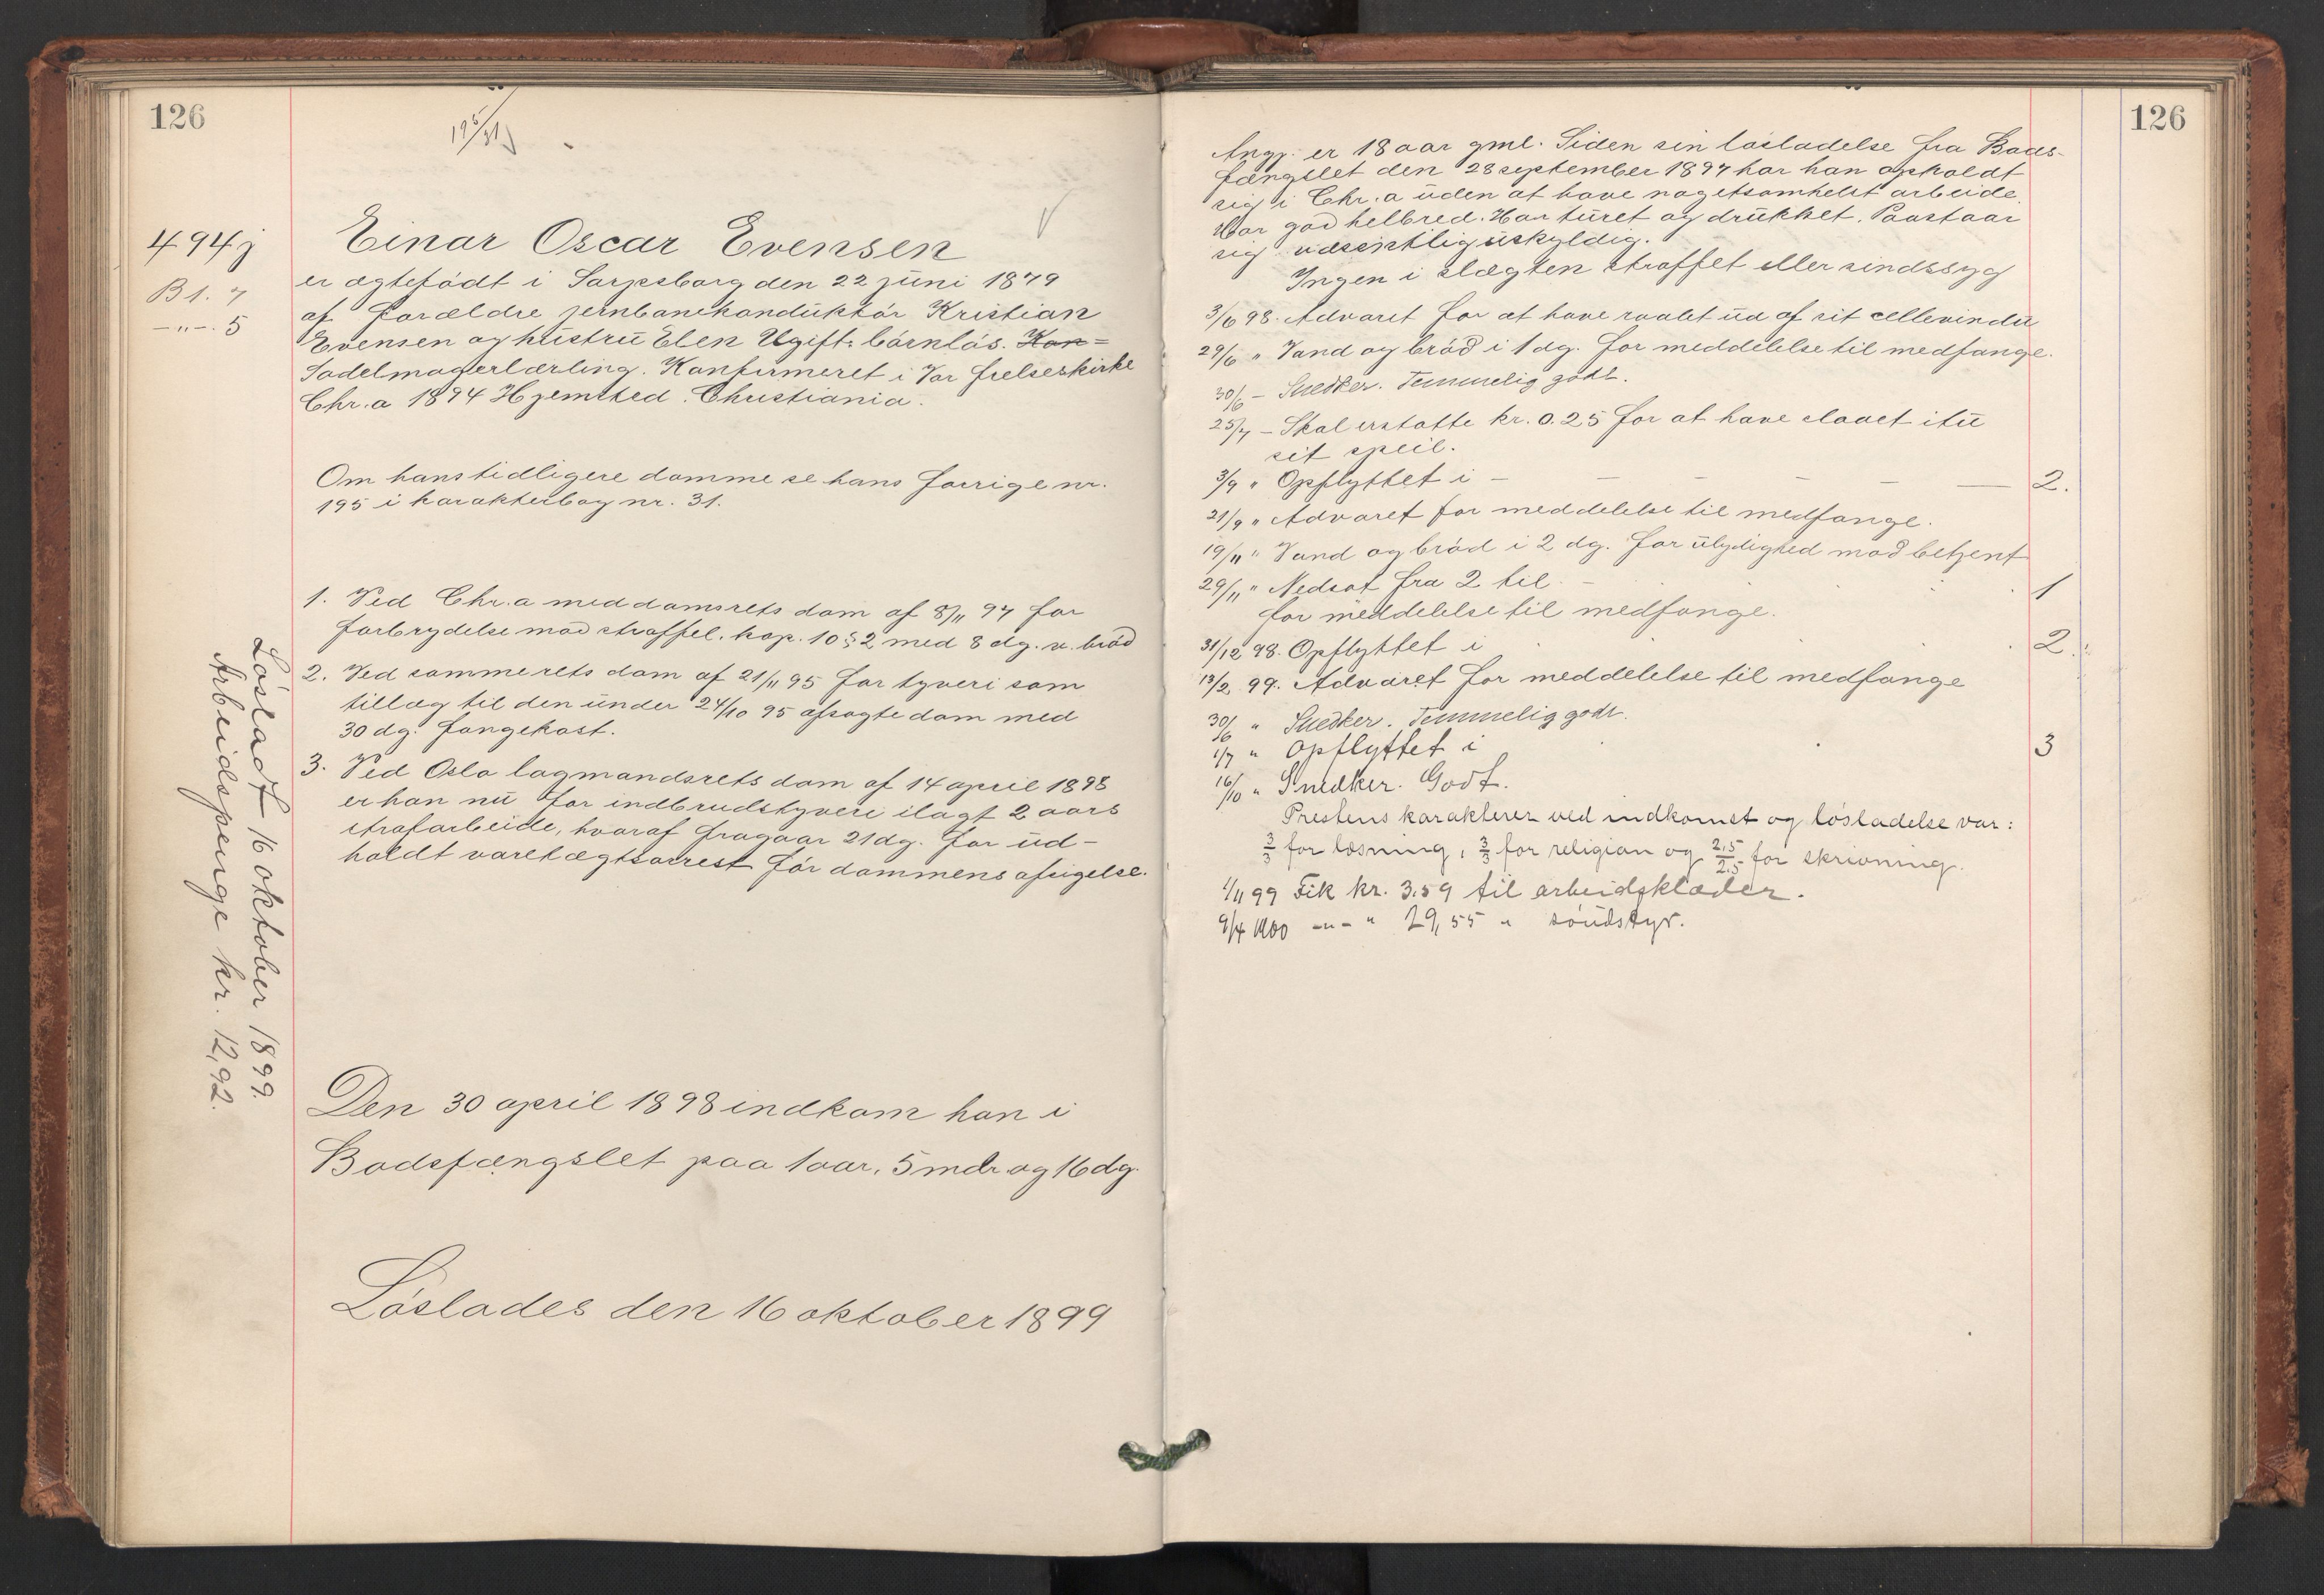 126
195/31 j
494 j
B 1. 7
-"-. 5
Einar Oscar Evensen
er ægtefødt i Sarpsborg den 22 juni 1879
af forældre jernbanekonduktør Kristian
Evensen og hustru Elen Ugift: børnløs. Kon=
Sadelmagerlærling. Konfirmeret i Vor frelserskirke
Chr.a 1894 Hjemsted. Christiania.
Om hans tidligere domme se hans forrige nr.
195 i karakterbog nr. 31.
1. Ved Chr.a meddomsrets dom af 8/11 97 for
forbrydelse mod straffel. kap. 10 § 2 med 8 dg. v. brød
2. Ved sammerets dom af 21/11 95 for tyveri som
tillæg til den under 24/10 95 afsagte dom med
30 dg. fangekost.
3. Ved Oslo lagmandsrets dom af 14 april 1898
er han nu for indbrudstyveri ilagt 2 aars
strafarbeide, hvoraf fragaar 21 dg. for ud-
holdt varetægtsarrest før dommens afsigelse.
Den 30 april 1898 indkom han i
Bodsfængslet paa 1 aar, 5 mdr og 16 dg.
Løslades den 16 oktober 1899
Løsladt 16 oktober 1899.
Arbeidspenge kr. 12,92.
126
Angj. er 18 aar gml. Siden sin løsladelse fra Bods-
fængslet den 28 september 1897 har han opholdt
sig i Chr.a uden at have nogetsomhelst arbeide.
Har god helbred. Har turet og drukket. Paastaar
sig udsigtlig uskyldig.
Ingen i slægten straffet eller sindssyg
3/6 98. Advaret for at have raabt ud af sit cellevindu
29/6 " Vand og brød i 1 dg. for meddelelse til medfange.
30/6 - Snedker. Temmelig godt.
25/7 - Skal erstatte kr. 0.25 for at have slaaet itu
sit speil.
3/9 " Opflyttet i - - - - - - 2.
21/9 " Advaret for meddelelse til medfange.
19/11 " Vand og brød i 2 dg. for ulydighed mod betjent
29/11 " Nedsat fra 2 til - 1
for meddelelse til medfange.
31/12 98. Opflyttet i 2.
13/2 99. Advaret for meddelelse til medfange
30/6 " Snedker. Temmelig godt.
1/7 " Opflyttet i 3
16/10 " Snedker. Godt.
Prestens karakterer ved indkomst og løsladelse var:
3/3 for læsning, 3/3 for religion og 2,5/2,5 for skrivning.
1/11 99 Fik kr. 3.59 til arbeidsklæder.
9/4 1900 -"- " 29,55 " søudstyr.